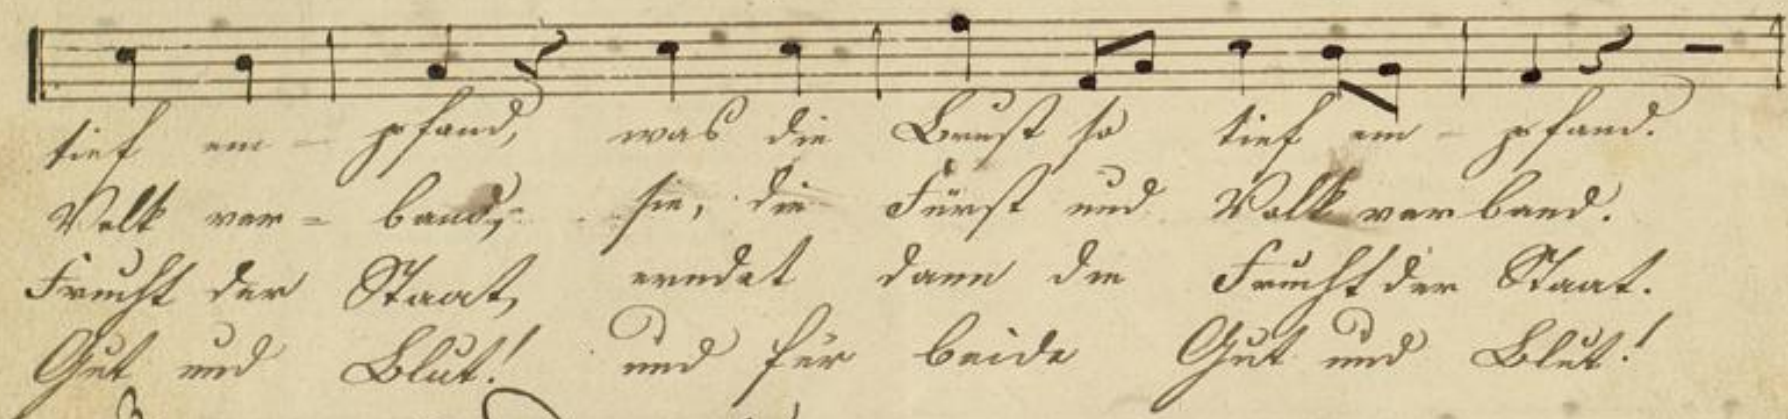 tief em- pfand, was die Brust so tief em- pfand.
Volk ver- band, sie, die Fürst und Volk verband.
Frucht der Staat, erndet dann die Frucht der Staat.
Gut und Blut! und für beide Gut und Blut!